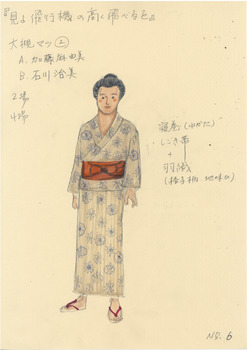 『見よ飛行機の高く飛べるを』
大槻マツ②
A.加藤麻由美
B.石川治美
2場
4場
寝巻(ゆかた)
しごき帯
+
羽織
(格子柄・地味め)
NO. 6